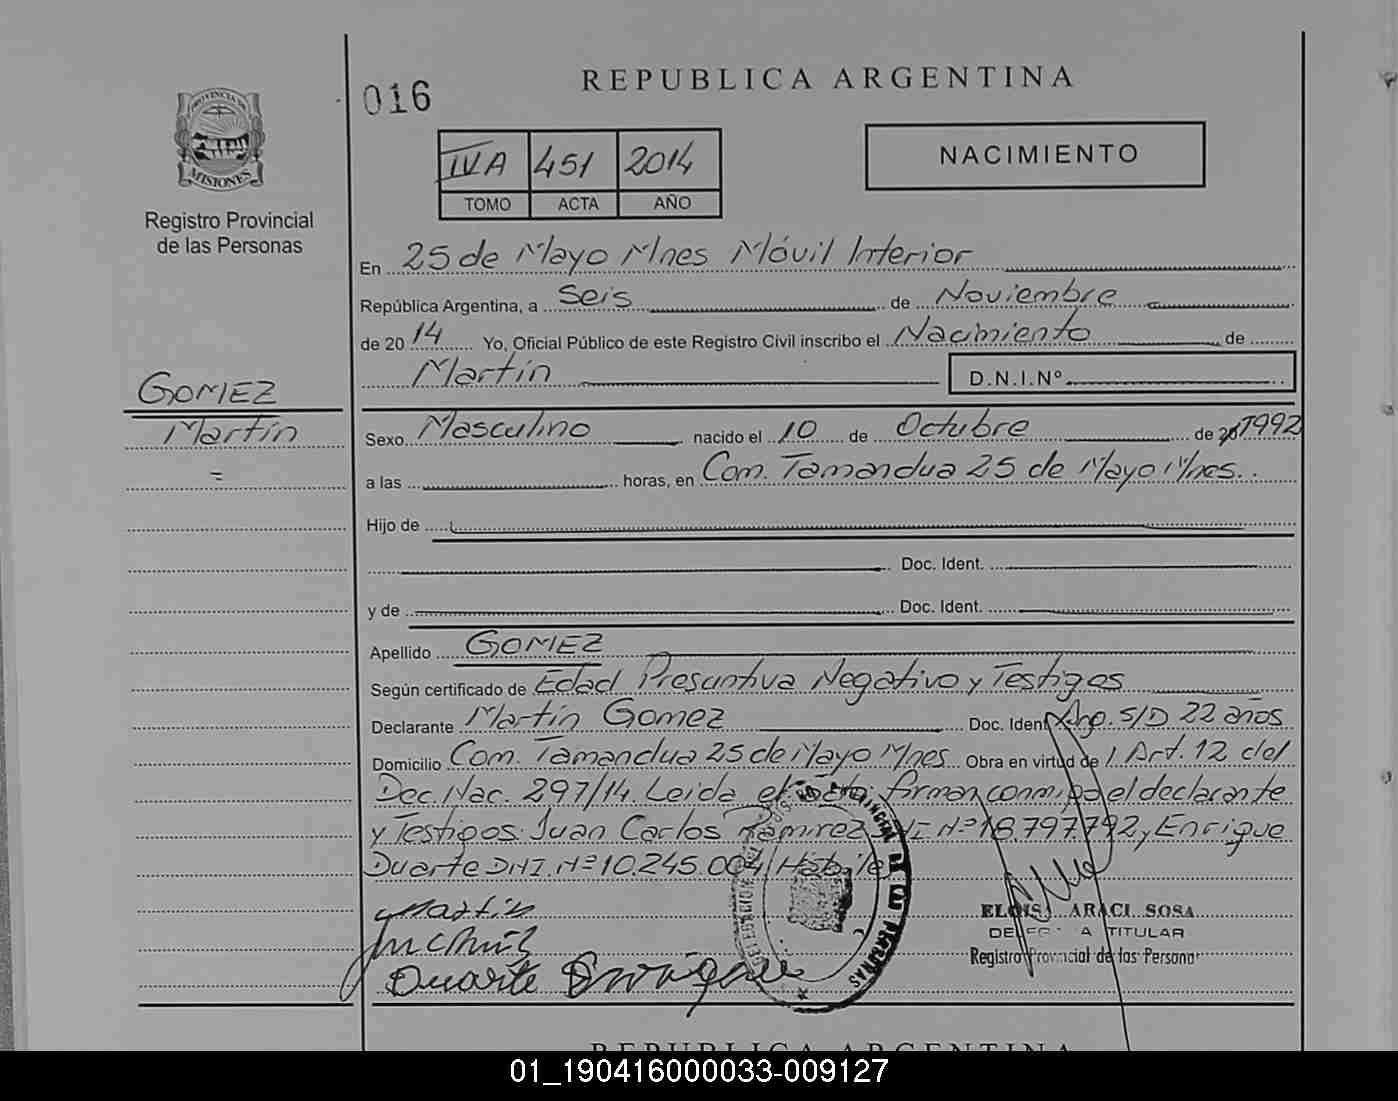 016
REPUBLICA ARGENTINA
PROVINCIA DE
MISIONES
Registro Provincial
de las Personas
IVA 451 2014
TOMO ACTA AÑO
NACIMIENTO
En 25 de Mayo Mnes Móvil Interior
República Argentina, a Seis de Noviembre
de 2014 Yo, Oficial Público de este Registro Civil inscribo el Nacimiento de
Martín D.N.I.Nº
GOMEZ
Martín
=
Sexo Masculino nacido el 10 de Octubre de 1992
a las horas, en Com. Tamandua 25 de Mayo Mnes.
Hijo de
Doc. Ident.
y de Doc. Ident.
Apellido GOMEZ
Según certificado de Edad Presuntiva Negativo y Testigos
Declarante Martín Gomez Doc. Ident. Arg. S/D 22 años
Domicilio Com. Tamandua 25 de Mayo Mnes Obra en virtud de Art. 12 del
Dec. Nac. 297/14. Leida el acta firman conmigo el declarante
y Testigos: Juan Carlos Ramirez Nº 18.797.792 y Enrique
Duarte DNI. Nº 10.245.004 / Hábiles
Martin
Duarte Enrique
ELOISA ARACI SOSA
DELEGADA TITULAR
Registro Provincial de las Personas
REPUBLICA ARGENTINA
01_190416000033-009127